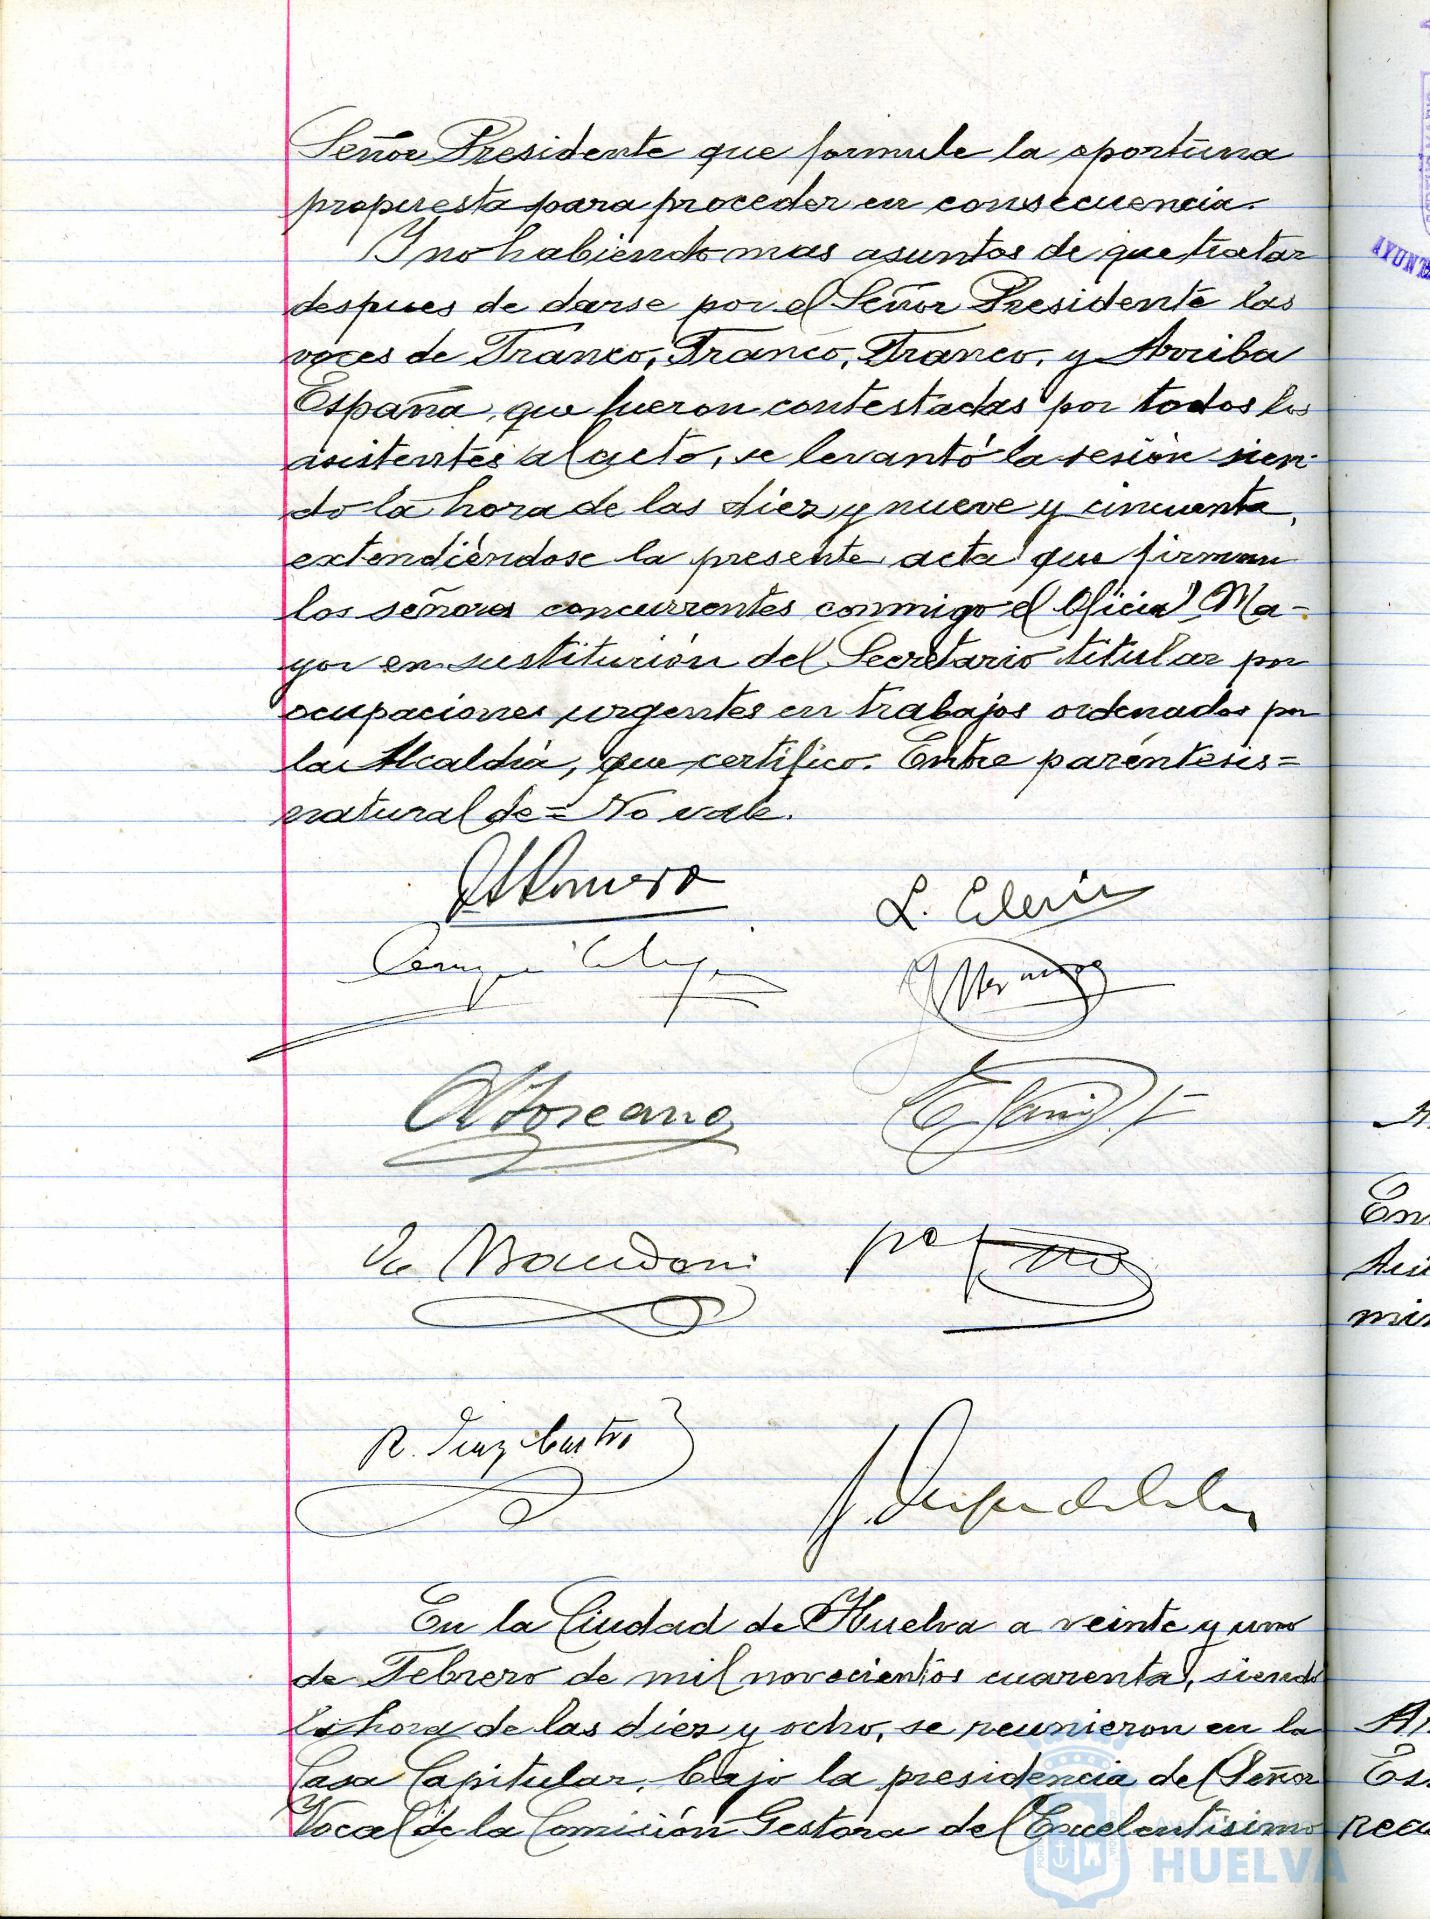 Señor Presidente que formule la oportuna
propuesta para proceder en consecuencia.
Y no habiendo mas asuntos de que tratar
despues de darse por el Señor Presidente las
voces de Franco, Franco, Franco, y Arriba
España, que fueron contestadas por todos los
asistentes al acto, se levantó la sesión sien-
do la hora de las diez y nueve y cincuenta,
extendiéndose la presente acta que firman
los señores concurrentes conmigo el Oficial Ma-
yor en sustitución del Secretario titular por
ocupaciones urgentes en trabajos ordenados por
la Alcaldía, que certifico. Entre paréntesis=
natural de= No vale.
Romero
L.
R. Diaz Castro
En la Ciudad de Huelva a veinte y uno
de Febrero de mil novecientos cuarenta, siendo
la hora de las diez y ocho, se reunieron en la
Casa Capitular, bajo la presidencia del Señor
Vocal de la Comisión Gestora del Excelentisimo
HUELVA